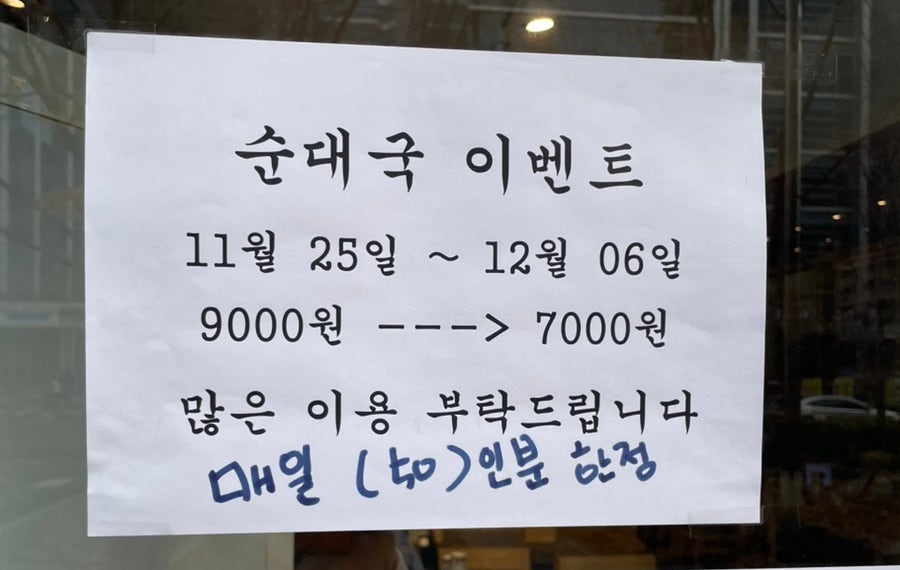 순대국 이벤트
11월 25일 ~ 12월 06일
9000원 ---> 7000원
많은 이용 부탁드립니다
매일 (50)인분 한정